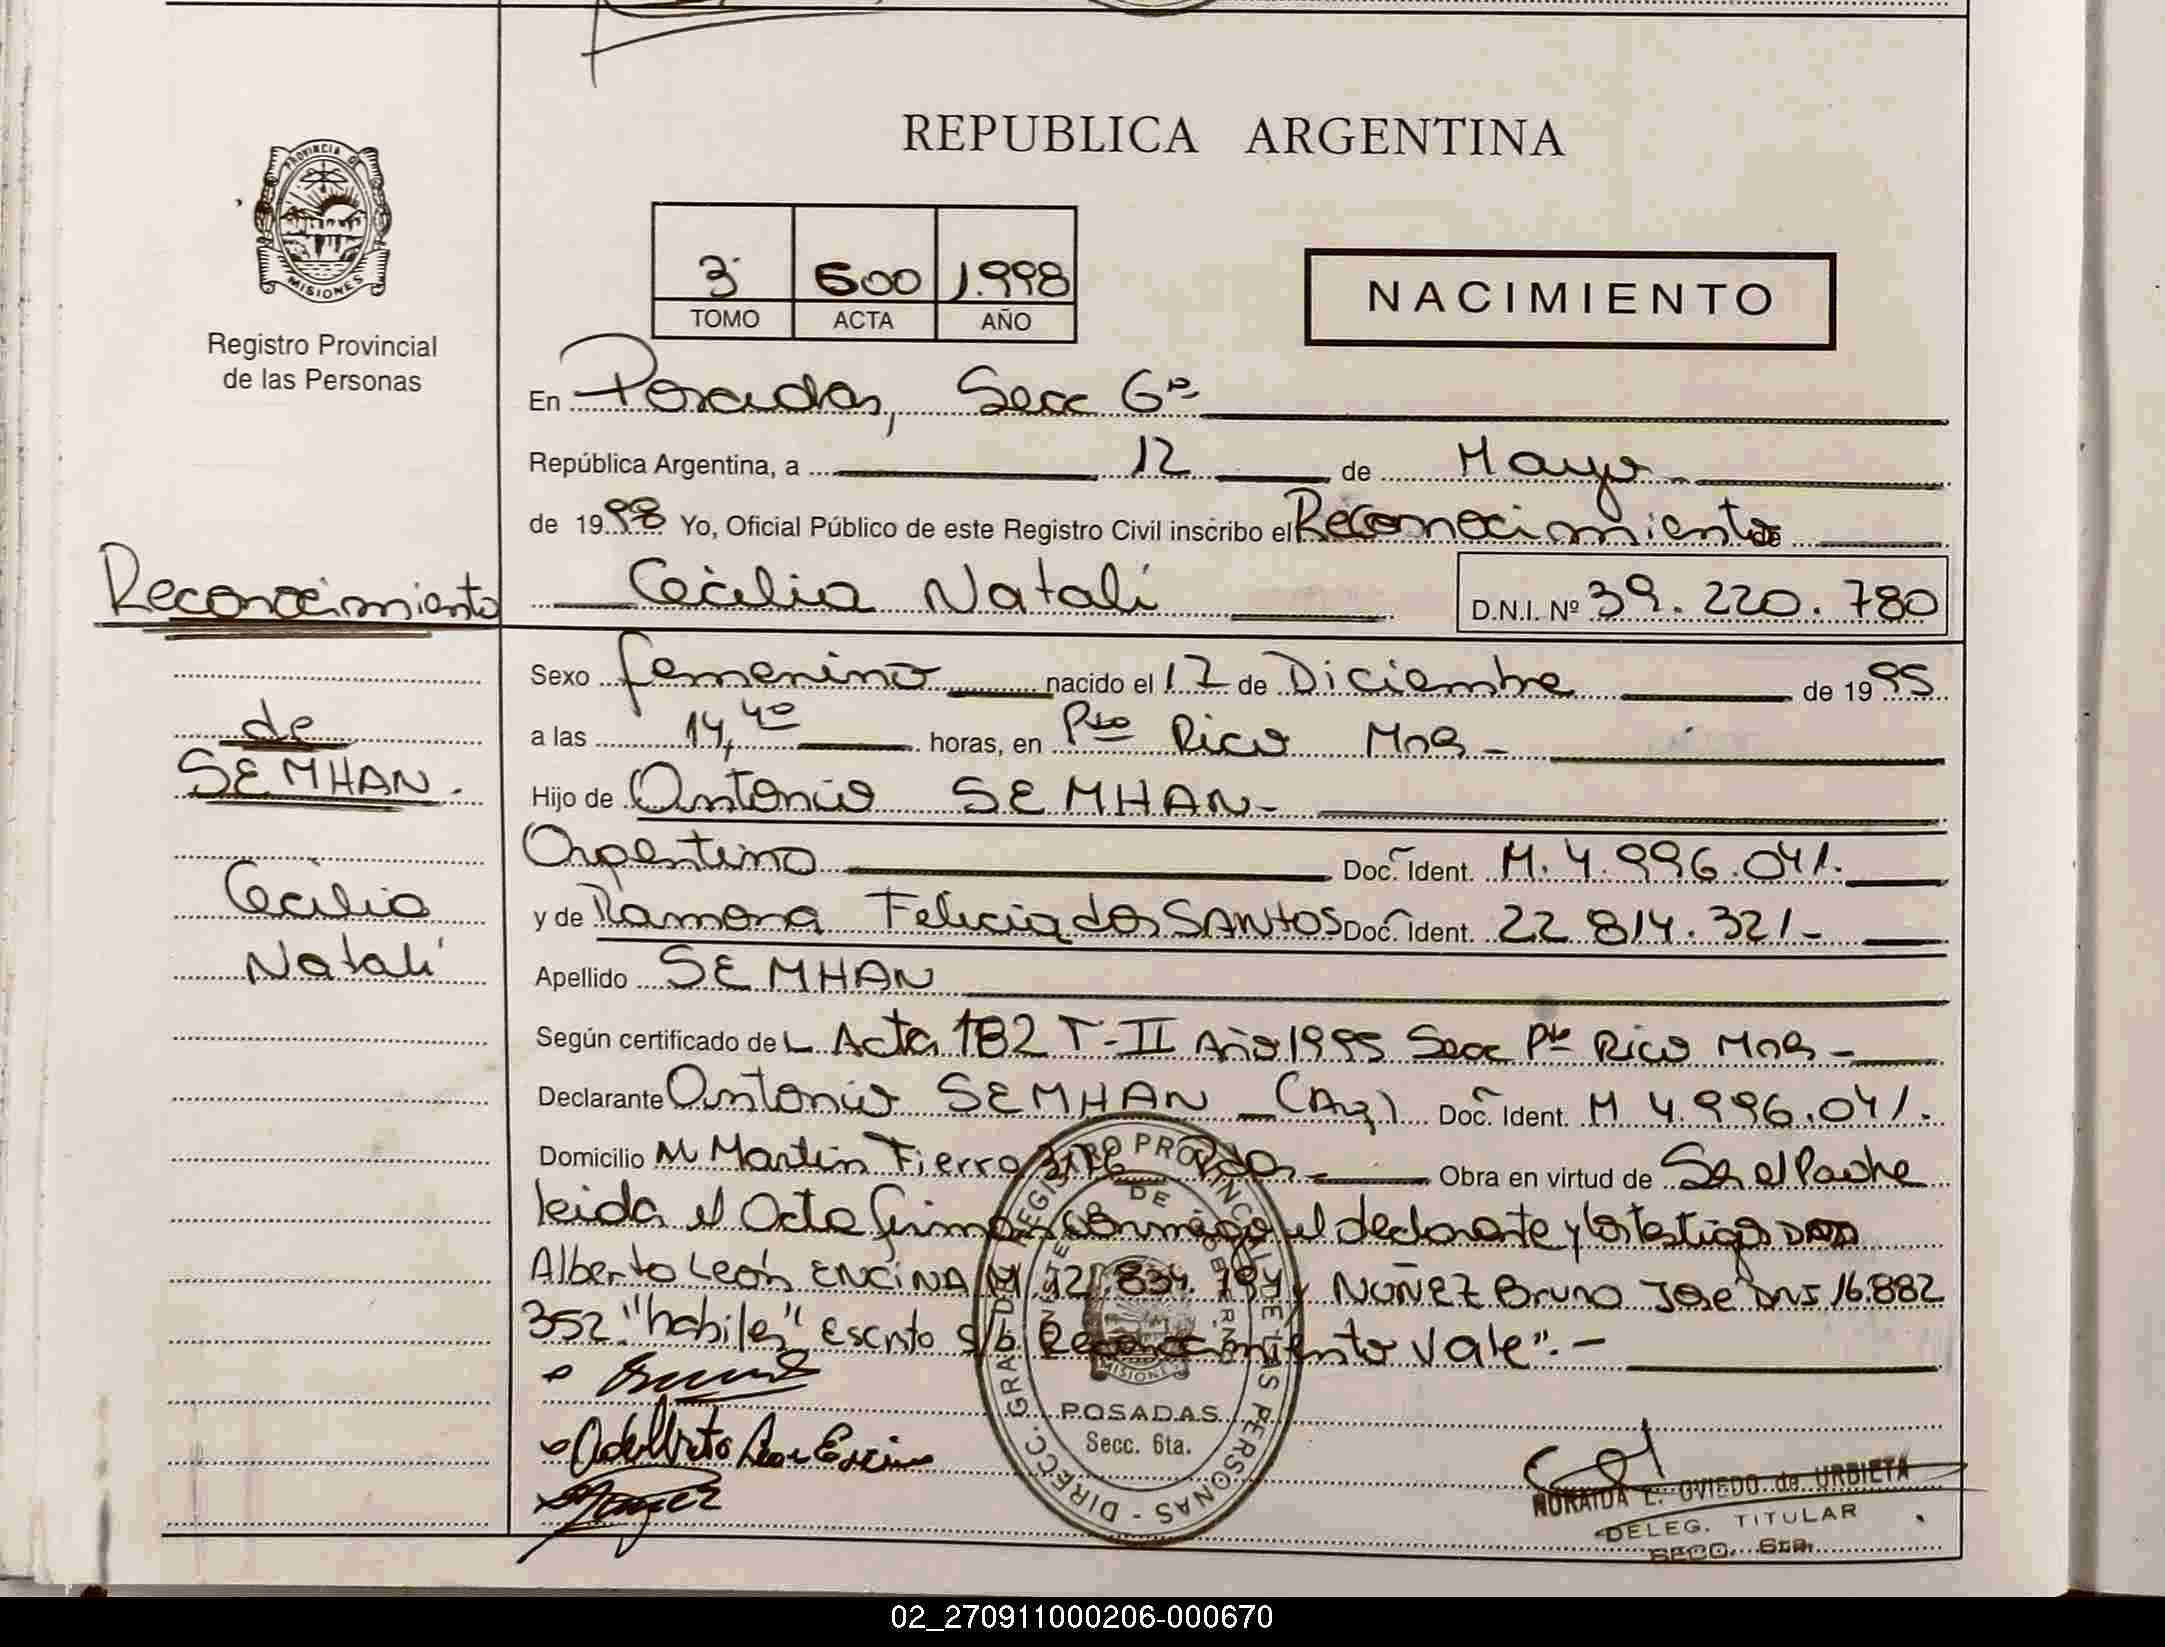 REPUBLICA ARGENTINA
PROVINCIA DE
MISIONES
Registro Provincial
de las Personas
3 600 1.998
TOMO ACTA AÑO
NACIMIENTO
En Posadas, Secc 6ª
República Argentina, a 12 de Mayo
de 1998 Yo, Oficial Público de este Registro Civil inscribo el Reconocimiento de
Cecilia Natalí D.N.I. Nº 39.220.780
Reconocimiento
de
SEMHAN.
Cecilia
Natalí
Sexo femenino nacido el 17 de Diciembre de 1995
a las 14,40 horas, en Pto Rico Mns -
Hijo de Antonio SEMHAN-
Argentino Doc. Ident. M. 4.996.041.
y de Ramona Felicia dos SANTOS Doc. Ident. 22 814.321-
Apellido SEMHAN
Según certificado de L Acta 182 T-II Año 1995 Secc Pto Rico Mns -
Declarante Antonio SEMHAN - (Arg) Doc. Ident. M 4.996.041.
Domicilio Martin Fierro Pdas - Obra en virtud de Ser el Padre
leida el Acta firman conmigo el declarante y los testigos
Alberto León ENCINA M 12.834. y NUÑEZ Bruno José DNI 16.882
352 "habiles" Escrito s/b Reconocimiento Vale".-
DIRECC. GRAL. DE REGISTRO PROVINCIAL DE LAS PERSONAS
MISIONES
POSADAS
Secc. 6ta.
NORAIDA E. OVIEDO de URBIETA
DELEG. TITULAR
SECC. 6ta.
02_270911000206-000670